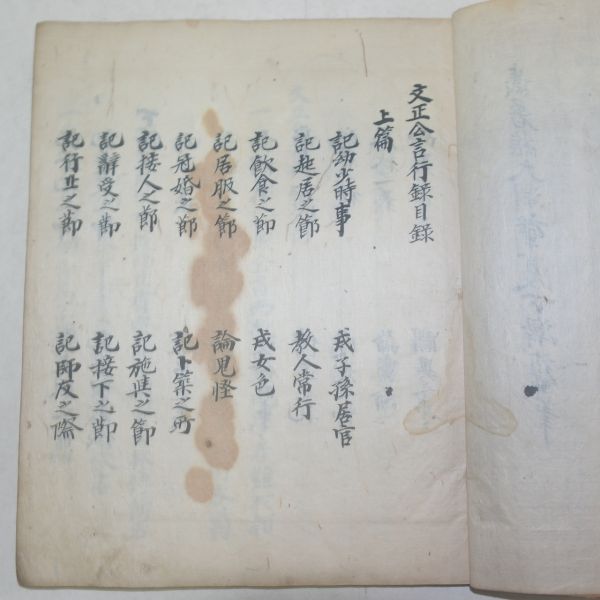 文正公言行録目録
上篇
記幼少時事
戒子孫居官
記起居之節
教人常行
記飲食之節
戒女色
記居服之節
論鬼怪
記冠婚之節
記卜築之所
記接人之節
記施與之節
記辭受之節
記接下之節
記行止之節
記師友之際